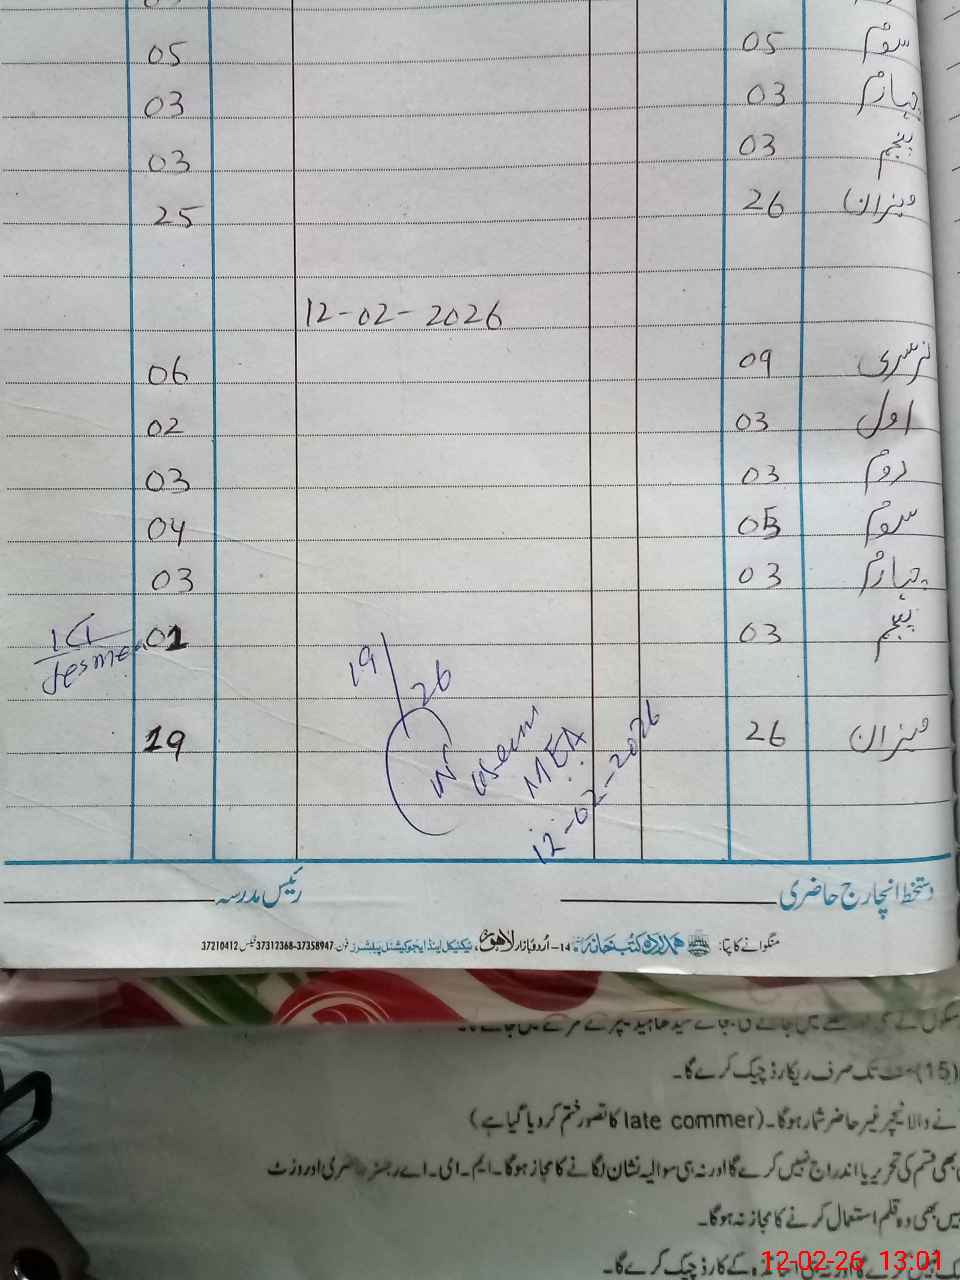 سوم 05 05
چہارم 03 03
پنجم 03 03
میزان 26 25
12-02-2026
نرسری 09 06
اول 03 02
دوم 03 03
سوم 05 04
چہارم 03 03
پنجم 03 01
19/26
میزان 26 19
Waseem
MEA
12-02-2026
دستخط انچارج حاضری رئیس مدرسہ
منگوانے کا پتا: ہمدرد کتب خانہ 14-اُردو بازار لاہور، ٹیکنیکل اینڈ ایجوکیشنل پبلشرز فون 37358947-37312368 فیکس 37210412
(15) تک صرف ریکارڈ چیک کرے گا۔
نے والا ٹیچر غیر حاضر شمار ہوگا۔ (late commer کا تصور ختم کر دیا گیا ہے)
بھی قسم کی تحریر یا اندراج نہیں کرے گا اور نہ ہی سوالیہ نشان لگانے کا مجاز ہوگا۔ ایم۔ای۔اے رجسٹر حاضری اور وزٹ
بھی وہ قلم استعمال کرنے کا مجاز نہ ہوگا۔
کے کارڈ چیک کرے گا۔
12-02-26 13:01